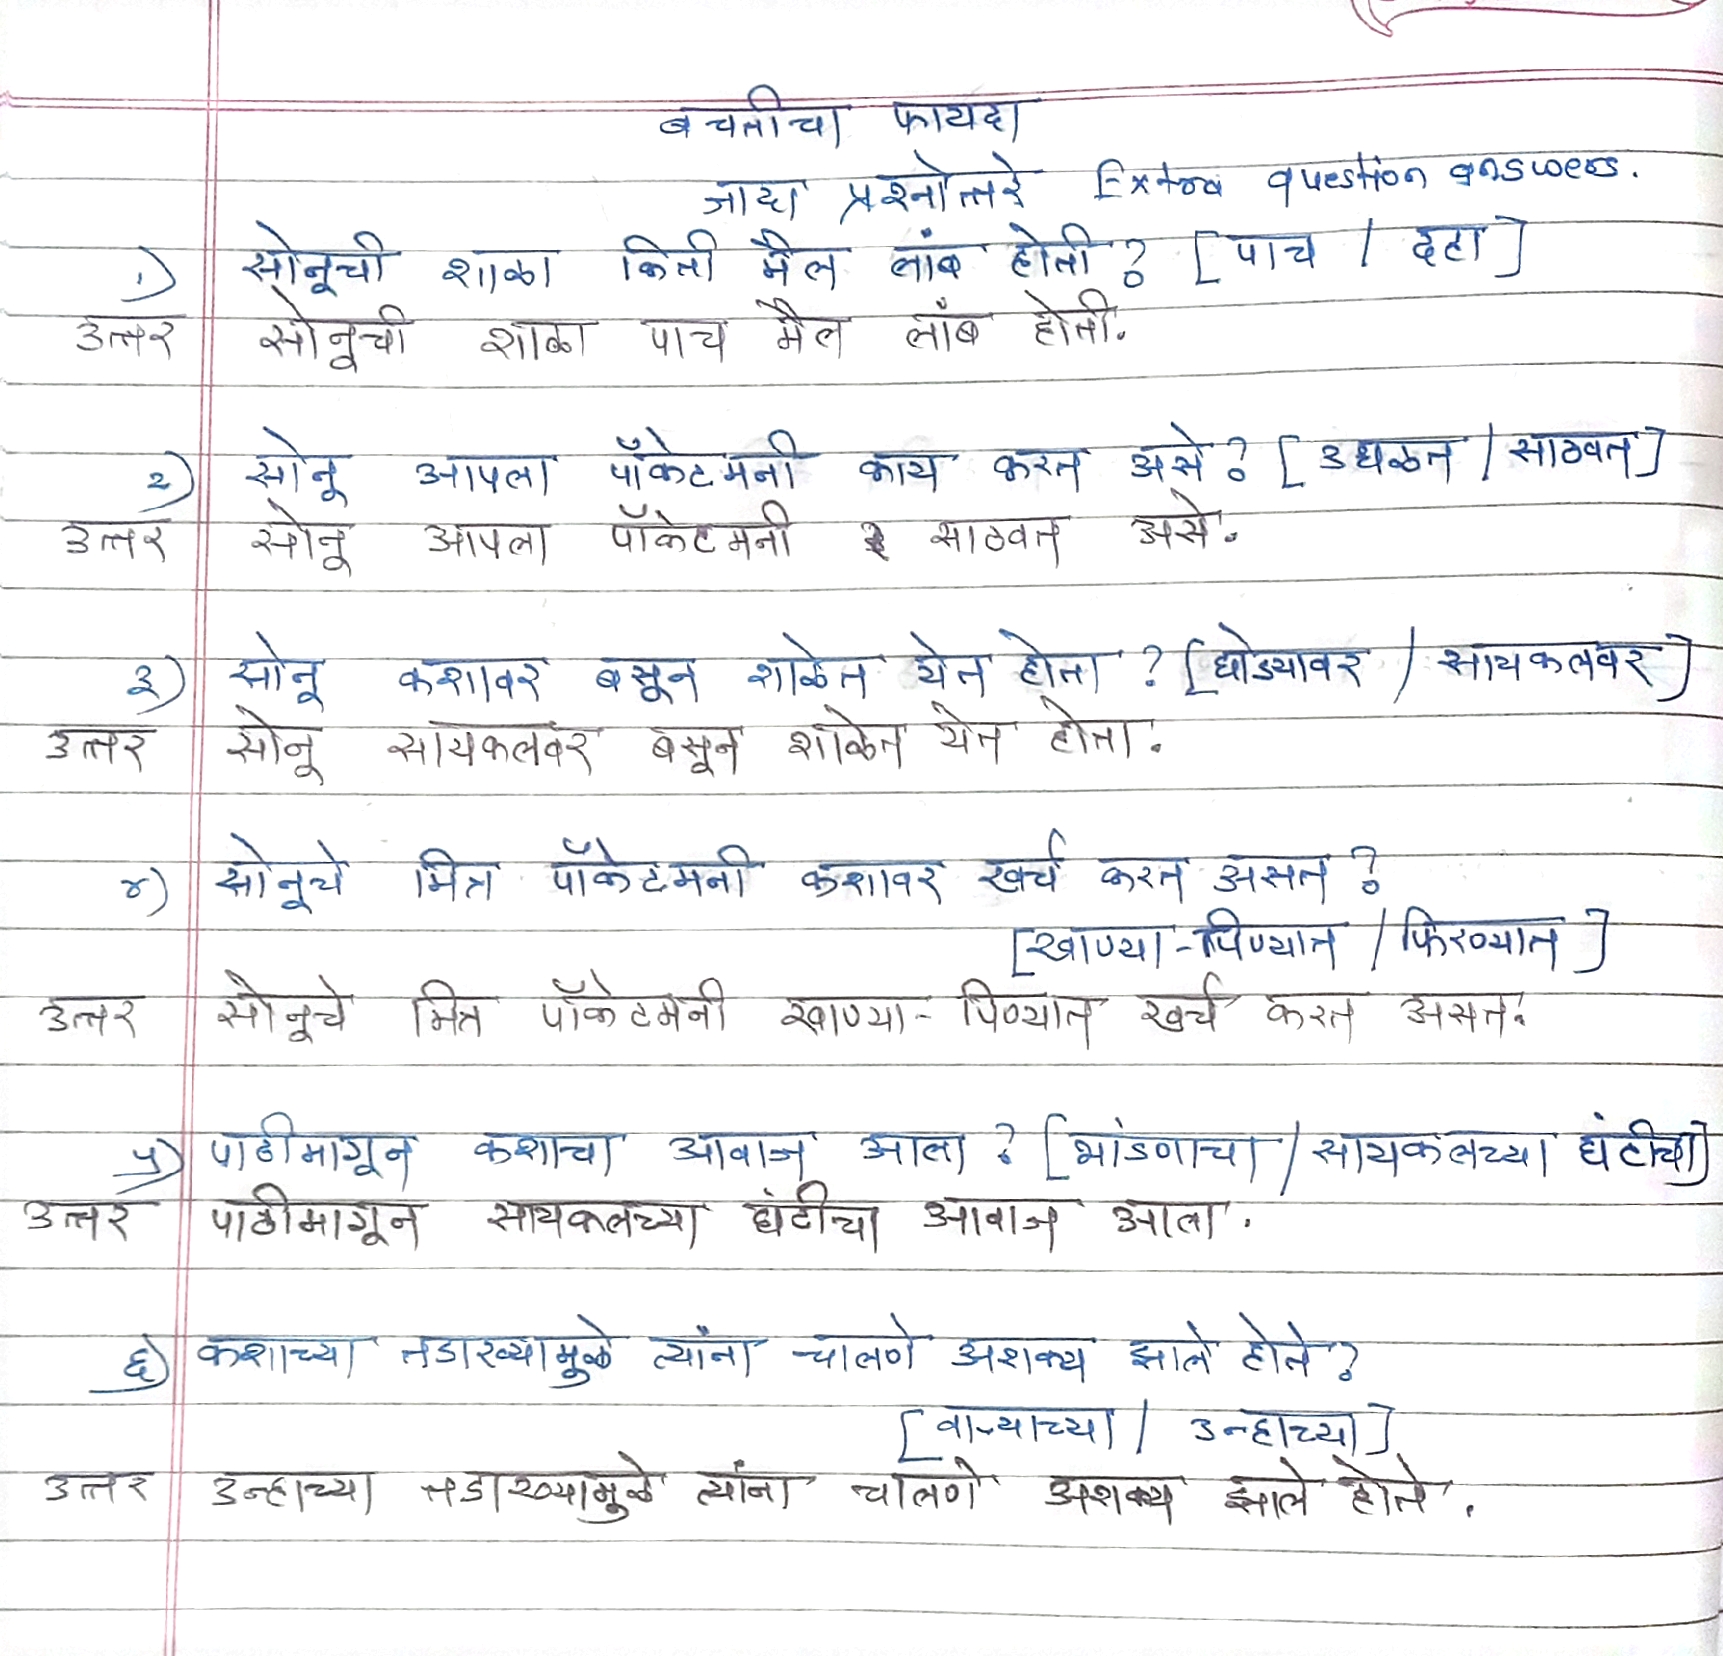 बचतीचा फायदा
जादा प्रश्नोत्तरे Extra question answers.
१) सोनूची शाळा किती मैल लांब होती? [पाच / दहा]
उत्तर सोनूची शाळा पाच मैल लांब होती.
२) सोनू आपला पॉकेटमनी काय करत असे? [उधळत / साठवत]
उत्तर सोनू आपला पॉकेटमनी साठवत असे.
३) सोनू कशावर बसून शाळेत येत होता? [घोड्यावर / सायकलवर]
उत्तर सोनू सायकलवर बसून शाळेत येत होता.
४) सोनूचे मित्र पॉकेटमनी कशावर खर्च करत असत?
[खाण्या-पिण्यात / फिरण्यात]
उत्तर सोनूचे मित्र पॉकेटमनी खाण्या-पिण्यात खर्च करत असत.
५) पाठीमागून कशाचा आवाज आला? [भांडणाचा / सायकलच्या घंटीचा]
उत्तर पाठीमागून सायकलच्या घंटीचा आवाज आला.
६) कशाच्या तडाख्यामुळे त्यांना चालणे अशक्य झाले होते?
[वाऱ्याच्या / उन्हाच्या]
उत्तर उन्हाच्या तडाख्यामुळे त्यांना चालणे अशक्य झाले होते.